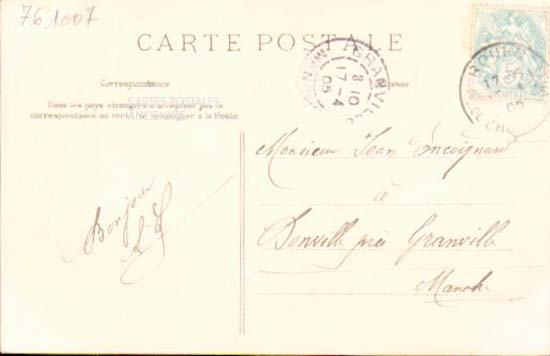 761007
CARTE POSTALE
Correspondance
Tous les pays étrangers n'acceptent pas la
correspondance au recto, se renseigner à la Poste
CARTES POSTALES
ANCIENNES
GRANVILLE
8 10
17 - 4
05
ROUEN
17
05
Monsieur Jean
à
Donville près Granville
Manche
Bonjour